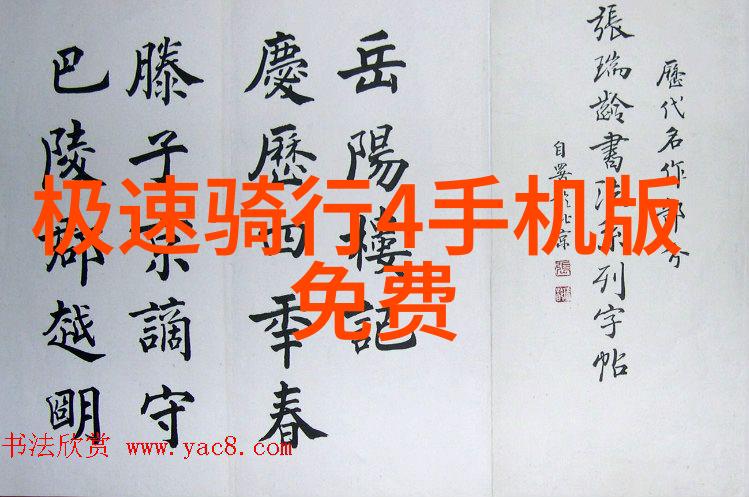 歷代名作部分
張瑞齡書法系列字帖
自署於北京
岳陽樓記
慶歷四年春
滕子京謫守
巴陵郡越明
极速骑行4手机版
免费
书法欣赏 www.yac8.com